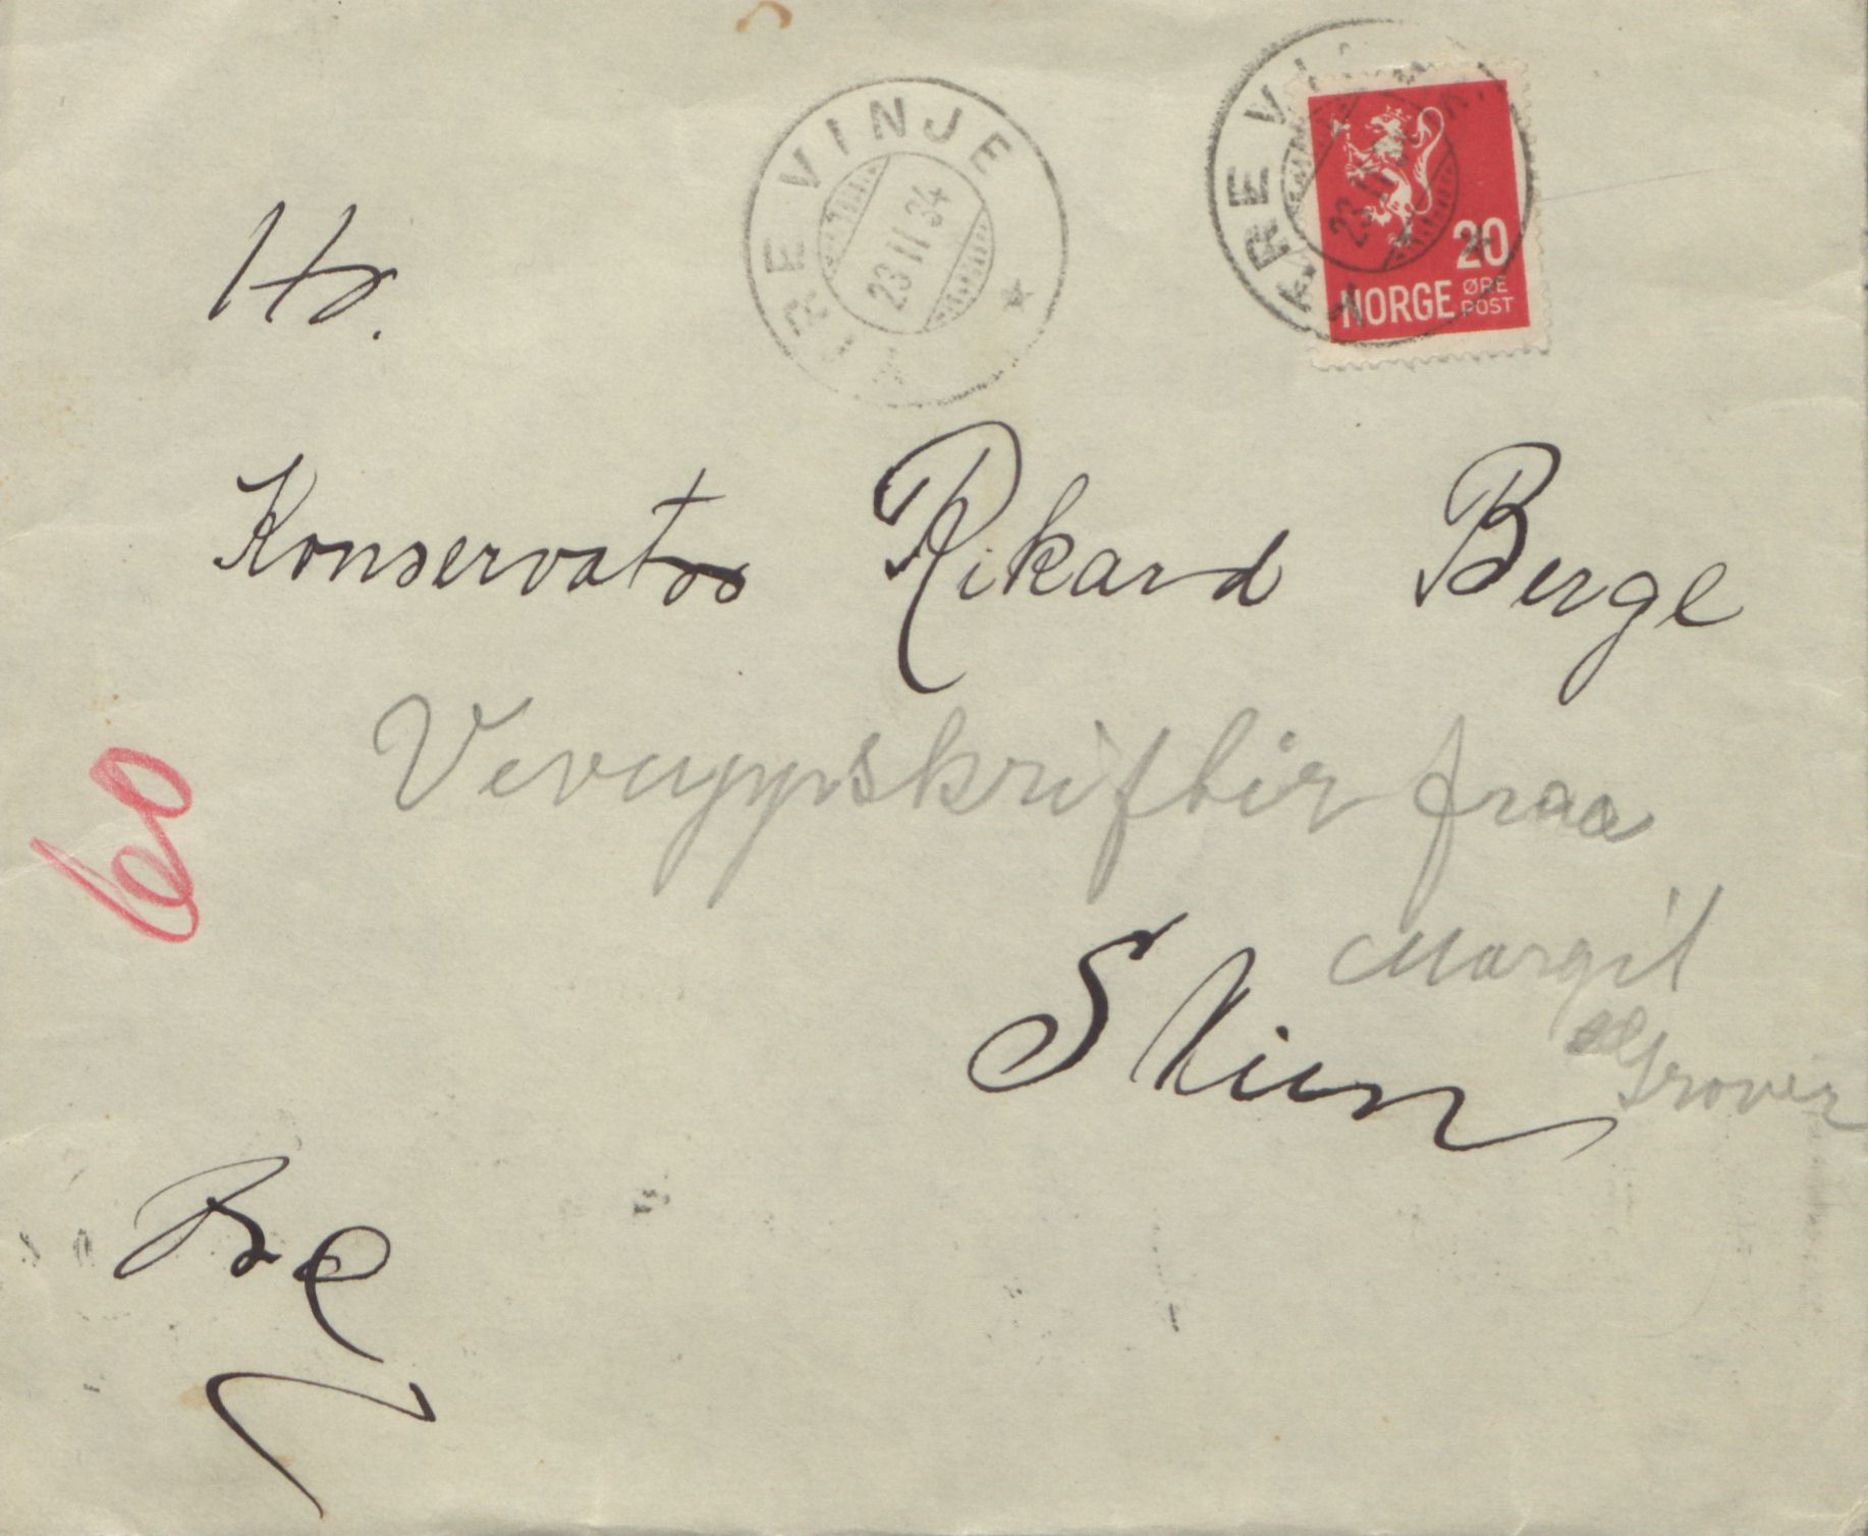 VINJE
23 II 34
20
NORGE ØRE POST
Hr.
Konservator Rikard Berge
Vevuppskriftir fraa
Margit
Grover
Skien
60